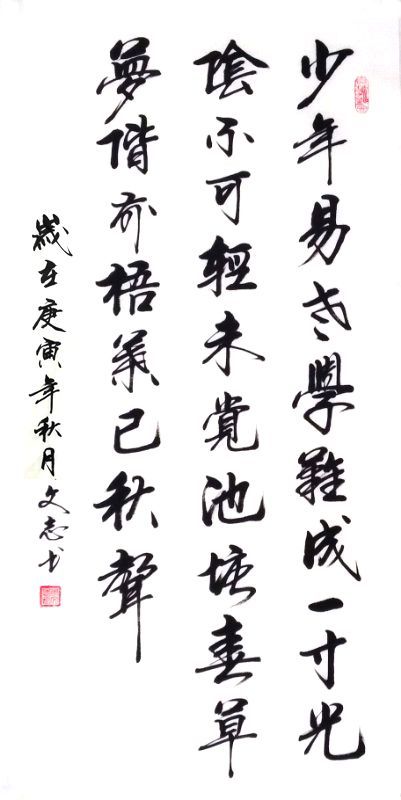 少年易老學難成一寸光
陰不可輕未覺池塘春草
夢階前梧葉已秋聲
歲在庚寅年秋月文志书